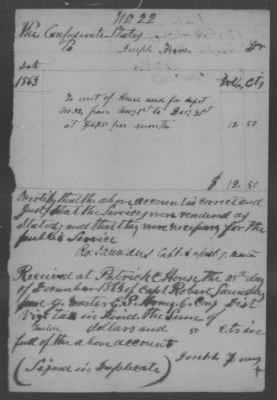 No 22
The Confederate States
To Joseph Dr
Date
1863 Dolls Cts
To rent of House used for depot
No. 32, from Nov. 1st to Dec. 31st
at $6.25 per month 12 50
$ 12.50
I certify that the above account is correct and
just that the Services were rendered as
Stated, and that they were necessary for the
public Service
Ro. Saunders Capt & Master
Received at Patrick C. House the 25th day
of December 1863 of Capt Robert Saunders
Master C.S. Army 6 Cong Dist
Virg Tax in Kind, the Sum of
Twelve dollars and 50 cts in
full of the above account
(Signed in Duplicate) Joseph